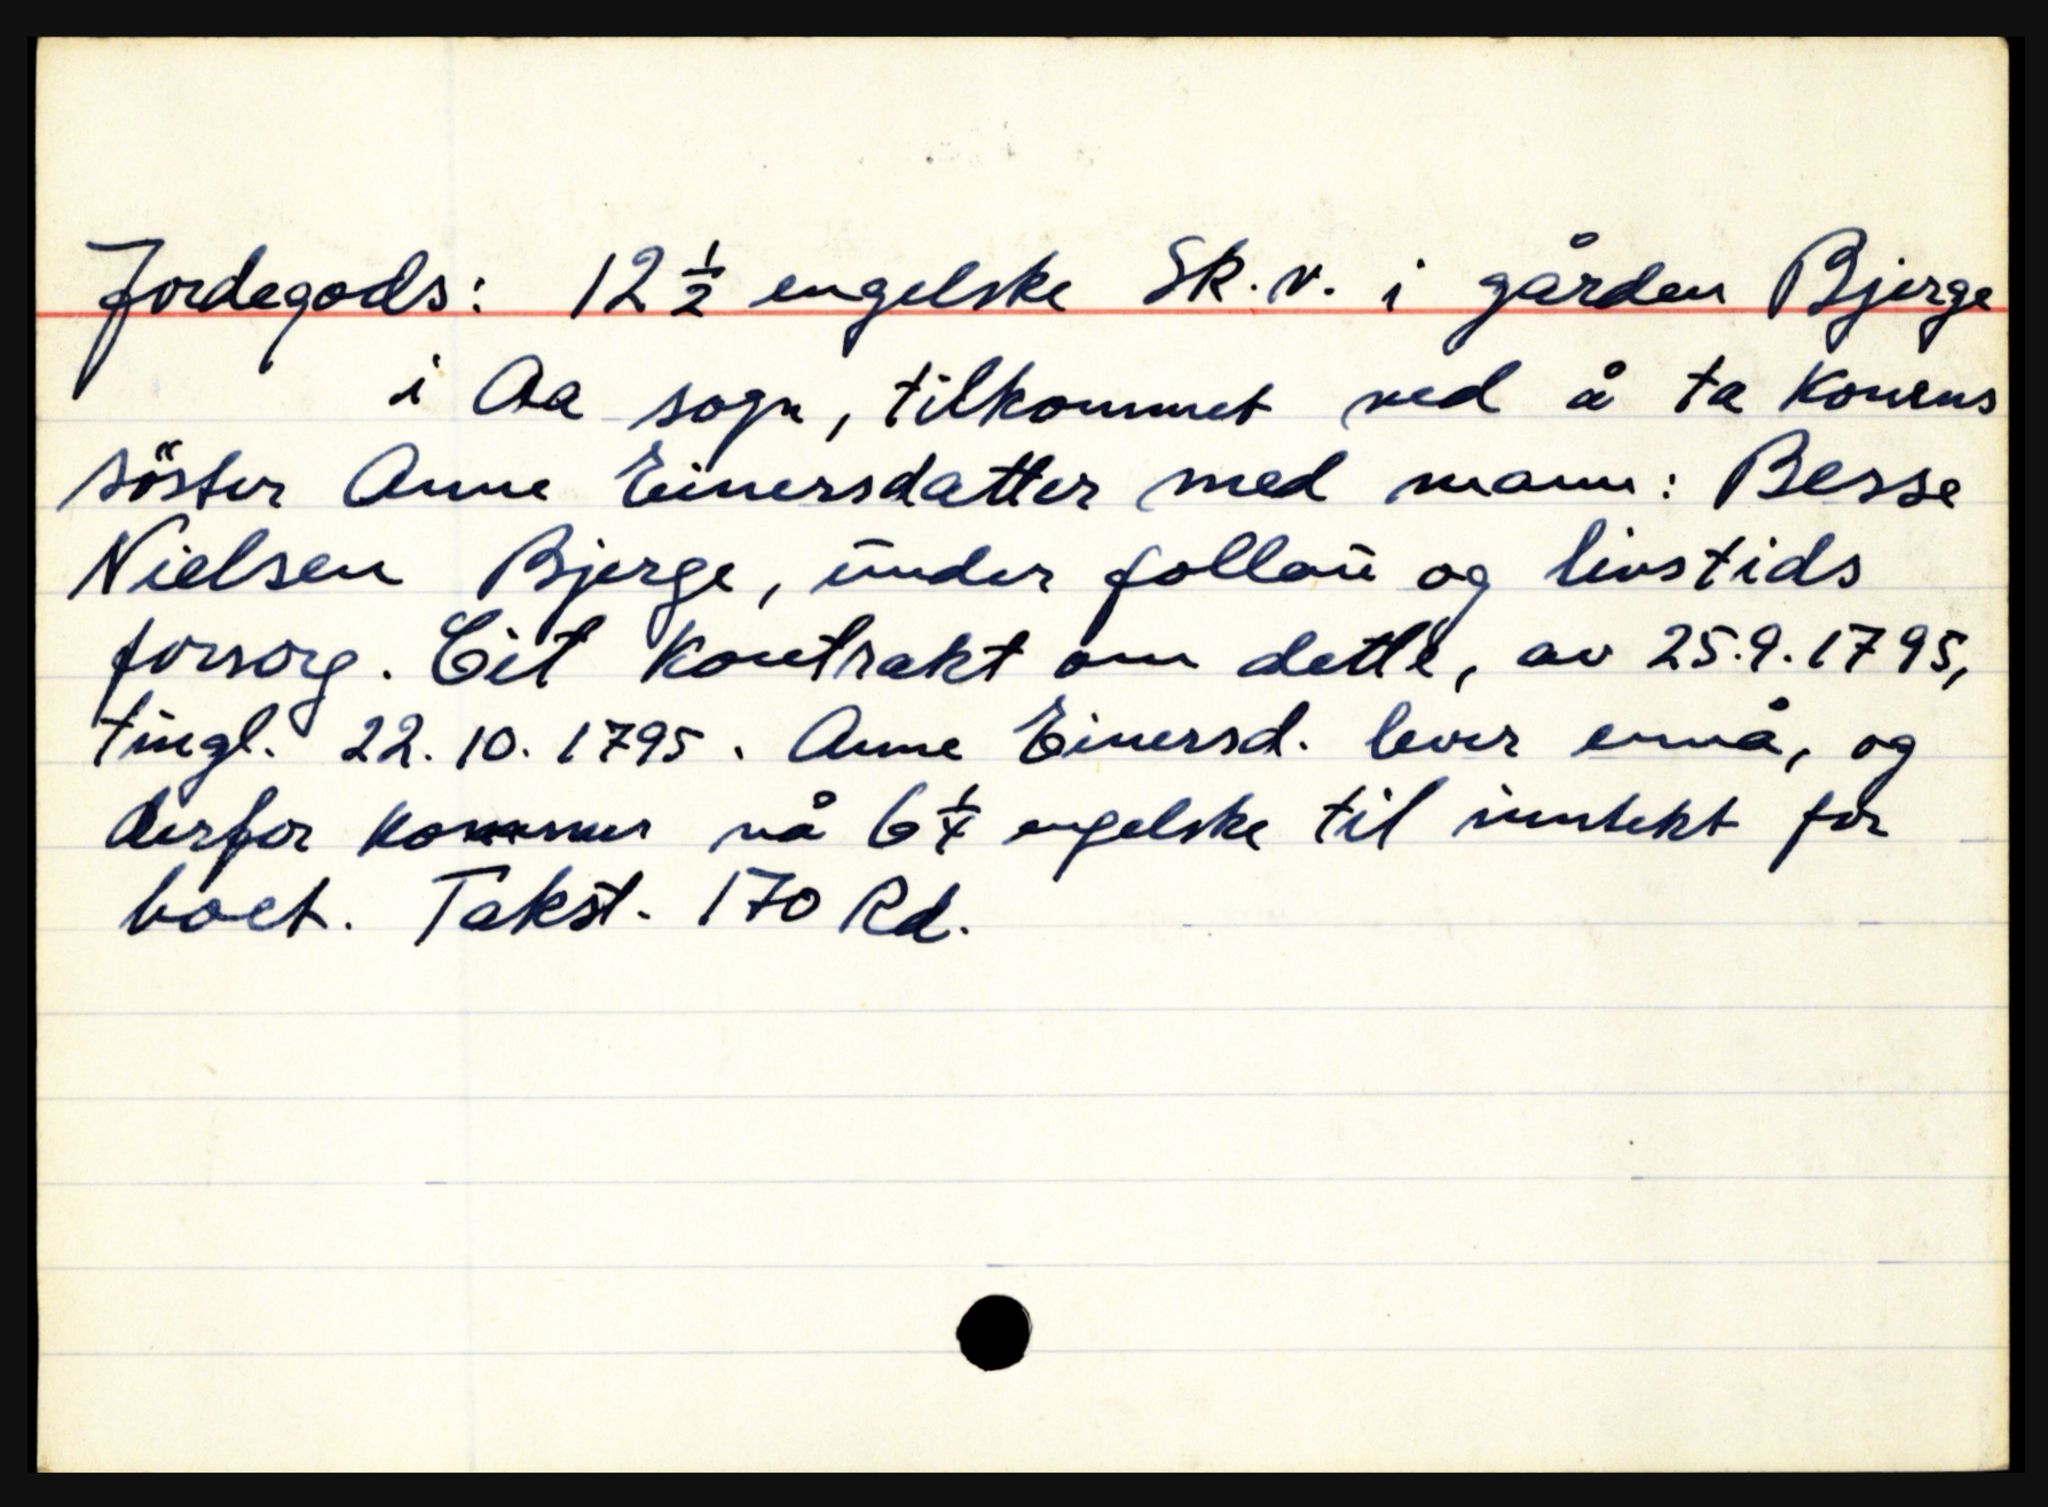 Jordegods: 12 1/2 engelske Sk.v. i gården Bjerge
i Aa sogn, tilkommet ved å ta konens
söster Anne Einersdatter med mann: Besse
Nielsen Bjerge, under follau og livstids
forsorg. Eit kontrakt om dette, av 25.9.1795,
tingl. 22.10.1795. Anne Einersd. lever ennå, og
derfor kommer nå 6 1/4 engelske til inntekt for
boet. Takst. 170 Rd.